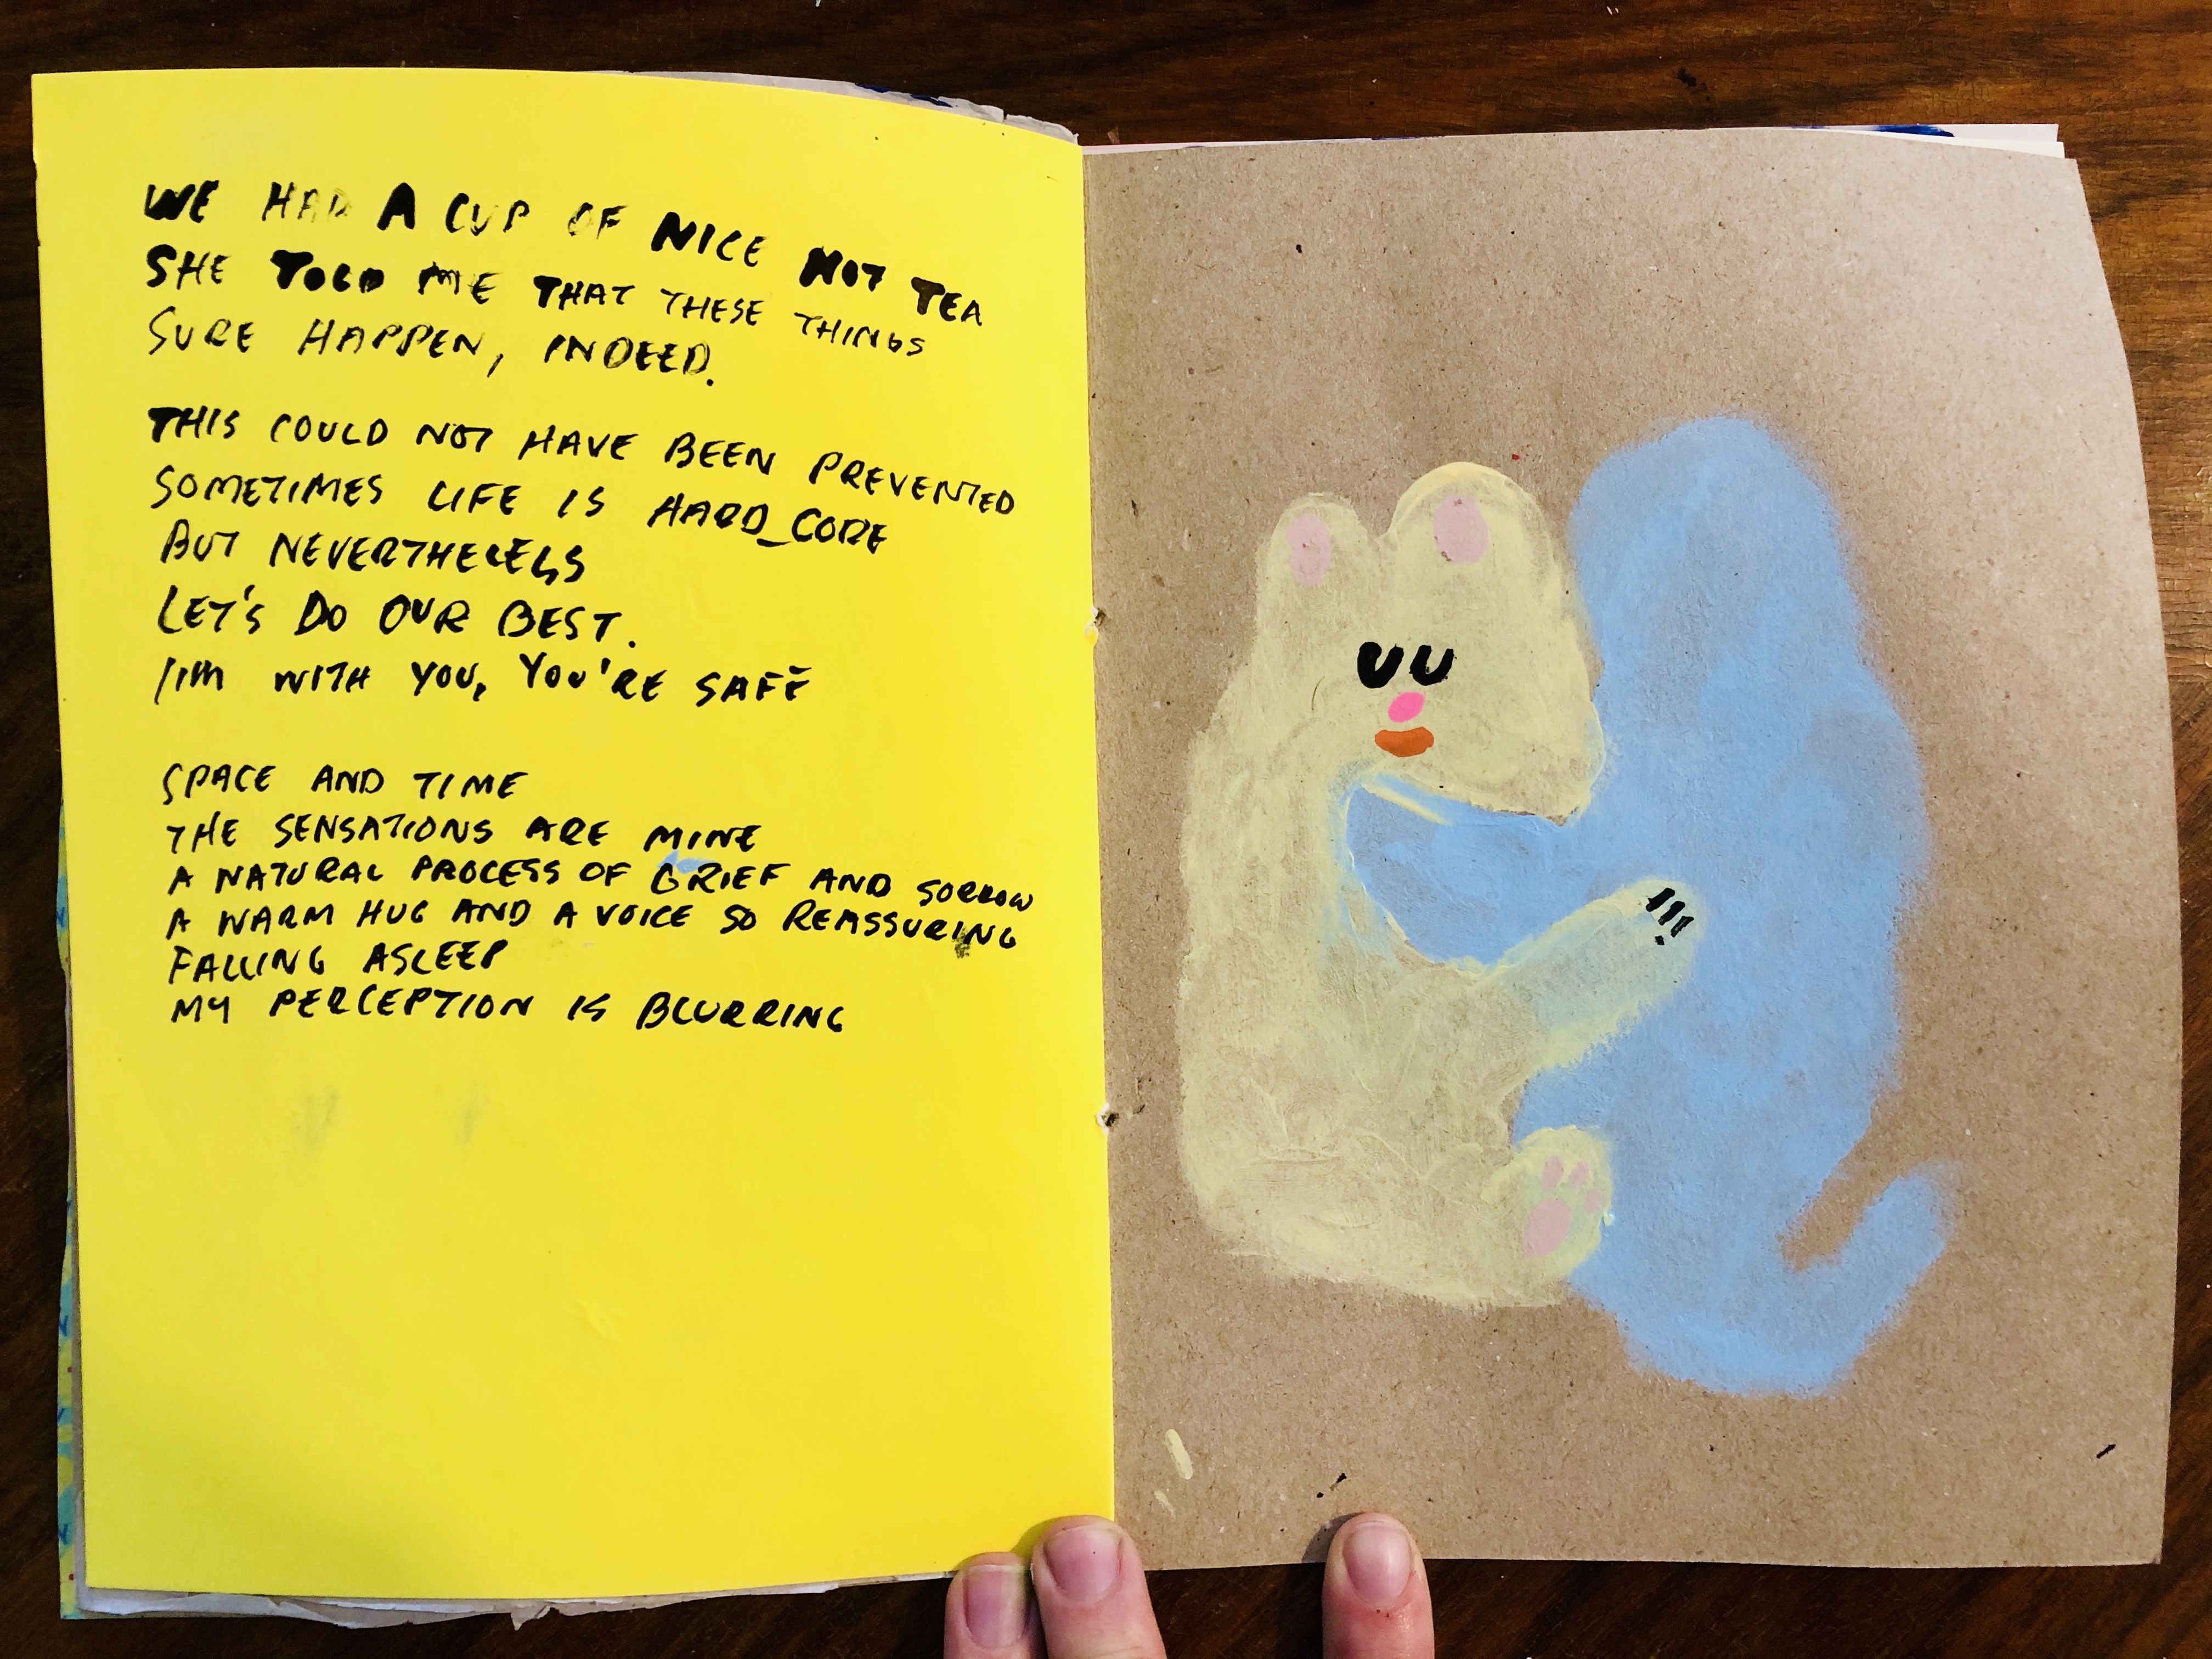 WE HAD A CUP OF NICE HOT TEA
SHE TOLD ME THAT THESE THINGS
SURE HAPPEN, INDEED.
THIS COULD NOT HAVE BEEN PREVENTED
SOMETIMES LIFE IS HARD_CORE
BUT NEVERTHELESS
LET'S DO OUR BEST.
I'M WITH YOU, YOU'RE SAFE
SPACE AND TIME
THE SENSATIONS ARE MINE
A NATURAL PROCESS OF GRIEF AND SORROW
A WARM HUG AND A VOICE SO REASSURING
FALLING ASLEEP
MY PERCEPTION IS BLURRING